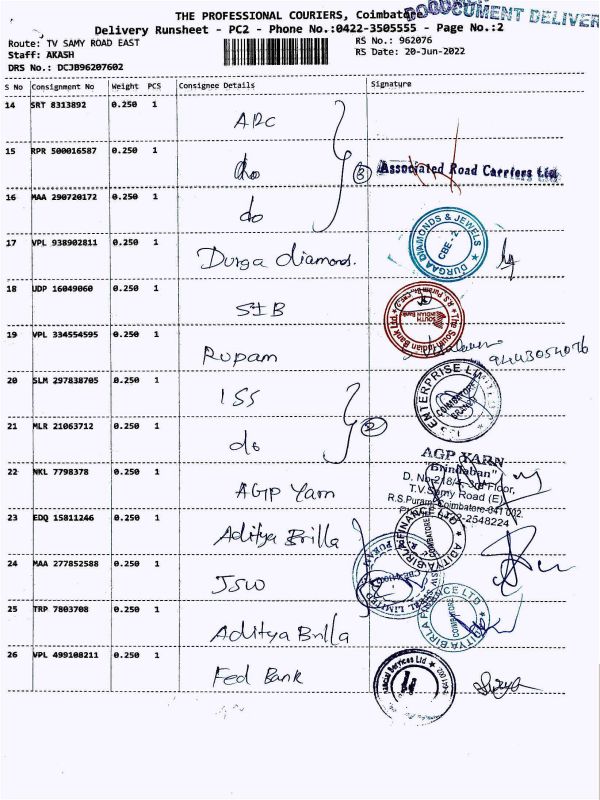 THE PROFESSIONAL COURIERS, Coimbato
DOCUMENT DELIVER
Delivery Runsheet - PC2 - Phone No.:0422-3505555 - Page No.:2
Route: TV SAMY ROAD EAST
RS No.: 962076
Staff: AKASH
RS Date: 20-Jun-2022
DRS No.: DCJB96207602
S No Consignment No Weight PCS Consignee Details Signature
14 SRT 8313892 0.250 1
ARC
15 RPR 500016587 0.250 1
do
3 Associated Road Carriers Ltd
16 MAA 290720172 0.250 1
do
17 VPL 938902811 0.250 1
Durga diamonds.
DURGAA DIAMONDS & JEWELS
CBE - 2
18 UDP 16049060 0.250 1
SIB
The South Indian Bank Ltd.
R.S. Puram
SOUTH INDIAN Bank
19 VPL 334554595 0.250 1
Rupam
9443054076
20 SLM 297838705 0.250 1
ISS
ENTERPRISE
COIMBATORE
21 MLR 21063712 0.250 1
do
2
22 NKL 7798378 0.250 1
AGP Yarn
AGP YARN
"Brindaban"
D. No-218/4, 3rd Floor,
T.V.Samy Road (E)
R.S.Puram, Coimbatore-641 002.
2548224
23 EDQ 15811246 0.250 1
Aditya Brilla
ADITYA BIRLA FINANCE LTD
COIMBATORE
24 MAA 277852588 0.250 1
JSW
25 TRP 7803708 0.250 1
Aditya Brilla
ADITYA BIRLA FINANCE LTD
COIMBATORE
26 VPL 499108211 0.250 1
Fed Bank
Services Ltd